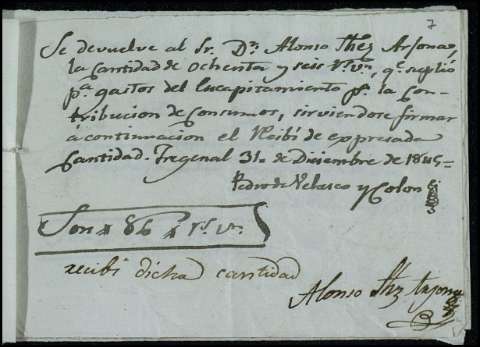 7
Se devuelve al Sr. Dn. Alonso Shez Arjona,
la Cantidad de ochenta y seis Rs. vn., qe. suplió
pa. gastos del Encapitamiento pa. la Con-
tribucion de Consumos, sirviendose firmar
á continuacion el Recibí de expresada
Cantidad. Fregenal 31 de Diciembre de 1845=
Pedro de Velasco y Colon
Son # 86 # rs. vn.
recibi dicha cantidad
Alonso Shz Arjona